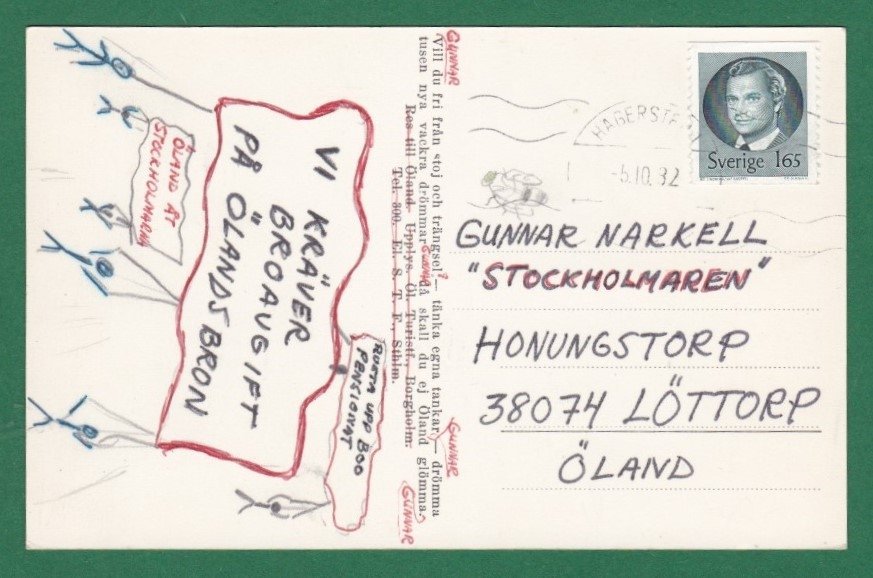 ÖLAND ÅT
STOCKHOLMARNA
VI KRÄVER
BROAVGIFT
PÅ ÖLANDSBRON
RUSTA UPP BOO
PENSIONAT
GUNNAR
Vill du fri från stoj och trängsel? — tänka egna tankar, — drömma
tusen nya vackra drömmar GUNNAR då skall du ej Öland glömma.
GUNNAR
GUNNAR
Res till Öland. Upplys. Öl. Turistf., Borgholm.
Tel. 300. El. S. T. F., Sthlm.
HÄGERSTE
-5.10.82
Sverige 165
GUNNAR NARKELL
"STOCKHOLMAREN"
HONUNGSTORP
38074 LÖTTORP
ÖLAND